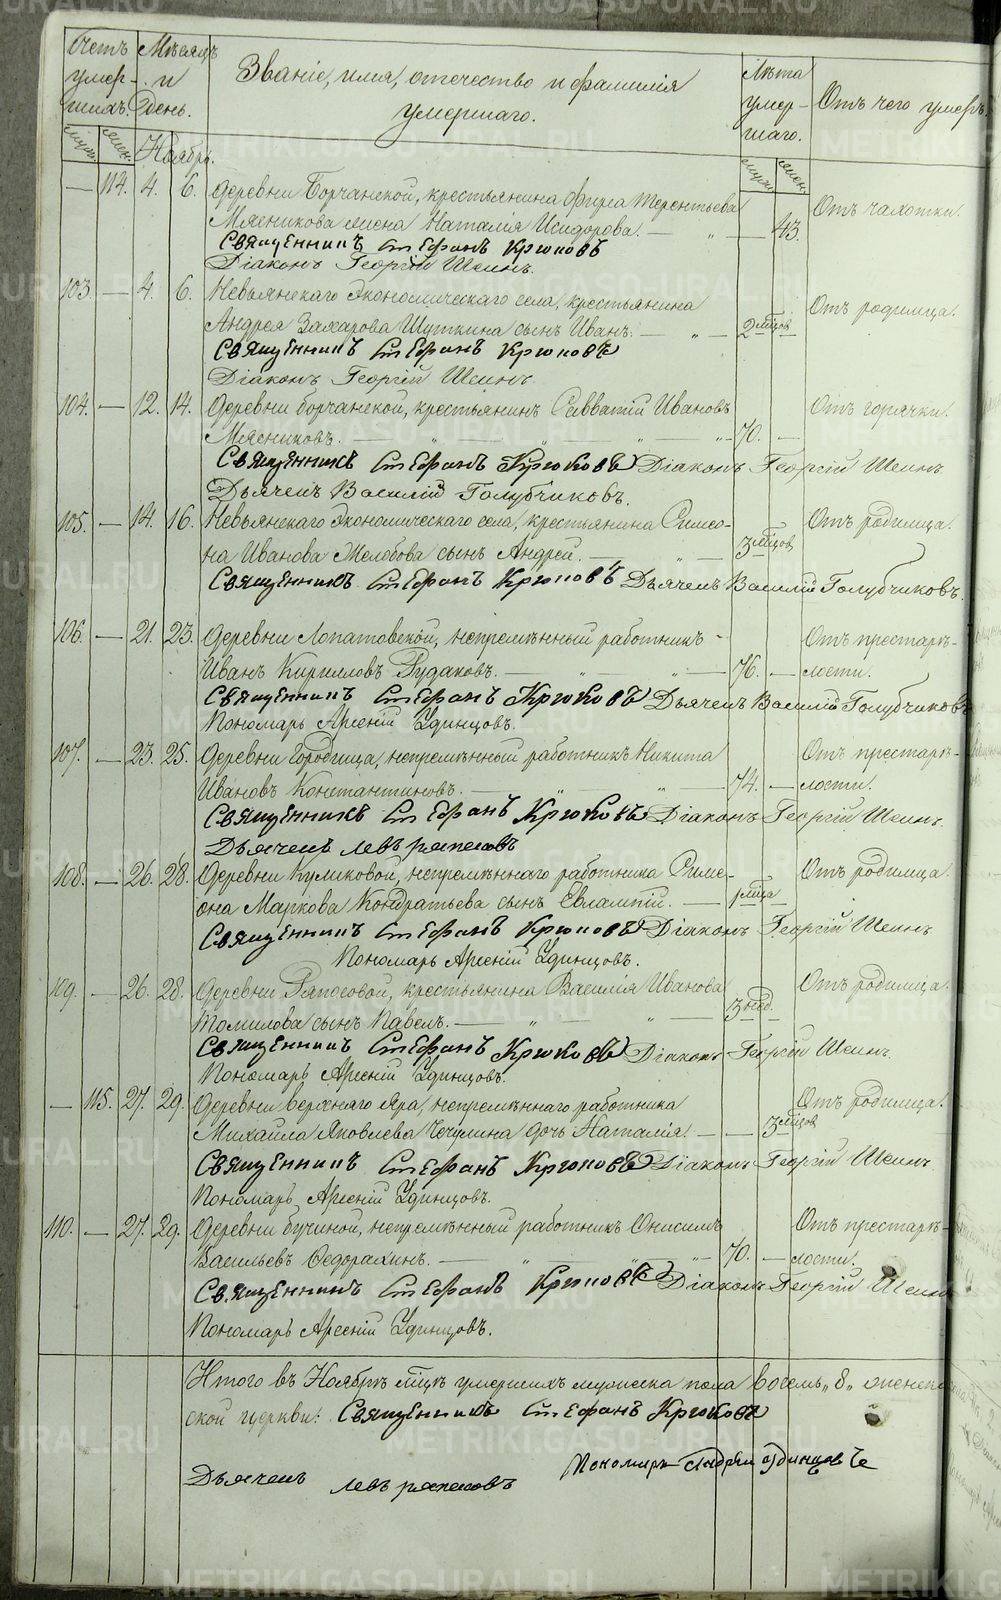 Счетъ умер- шихъ.
Мѣсяцъ и День.
Званіе, имя, отечество и фамилія
умершаго.
Лѣта умер- шаго.
Отъ чего умеръ.
муж. жен. Ноябрь. муж. жен.
— 114. 4. 6. Деревни Борчанской, крестьянина Фирса Терентьева
Мясникова жена Наталія Исидорова. — „ — 43. Отъ чахотки.
Священникъ Стефанъ Крюковъ
Діаконъ Георгій Шеинъ.
103. — 4. 6. Невьянскаго Экономическаго села, крестьянина
Андрея Захарова Шуткина сынъ Иванъ. — „ — 2 мцов Отъ родимца.
Священникъ Стефанъ Крюковъ
Діаконъ Георгій Шеинъ.
104. — 12. 14. Деревни Борчанской, крестьянинъ Савватій Ивановъ
Мясниковъ. — „ — „ — „ — „ 70. — Отъ горячки.
Священникъ Стефанъ Крюковъ Діаконъ Георгій Шеинъ
Дьячекъ Василій Голубчиковъ.
105. — 14. 16. Невьянскаго Экономическаго села, крестьянина Симео-
на Иванова сынъ Андрей. — „ — 3 мцов Отъ родимца.
Священникъ Стефанъ Крюковъ Дьячекъ Василій Голубчиковъ.
106. — 21. 23. Деревни Лопатовской, непремѣнный работникъ -
Иванъ Кирилловъ Рудаковъ. — „ — „ — 76. — Отъ престарѣ-
лости.
Священникъ Стефанъ Крюковъ Дьячекъ Василій Голубчиковъ
Пономарь Арсеній Удинцовъ.
107. — 23. 25. Деревни Городища, непремѣнный работникъ Никита
Ивановъ Константиновъ. — „ — „ — 74. — Отъ престарѣ-
лости.
Священникъ Стефанъ Крюковъ Діаконъ Георгій Шеинъ.
Дьячекъ Левъ
108. — 26. 28. Деревни Куликовой, непремѣннаго работника Симе-
она Маркова Кондратьева сынъ Евлампій. — 1 мца Отъ родимца.
Священникъ Стефанъ Крюковъ Діаконъ Георгій Шеинъ
Пономарь Арсеній Удинцовъ.
109. — 26. 28. Деревни Ряпосовой, крестьянина Василія Иванова
Томилова сынъ Павелъ. — „ — „ — 3 нед. Отъ родимца.
Священникъ Стефанъ Крюковъ Діаконъ Георгій Шеинъ.
Пономарь Арсеній Удинцовъ.
— 115. 27. 29. Деревни Верхняго Яра, непремѣннаго работника
Михаила Яковлева Чечулина дочь Наталія. — — 3 мцов Отъ родимца.
Священникъ Стефанъ Крюковъ Діаконъ Георгій Шеинъ
Пономарь Арсеній Удинцовъ.
110. — 27. 29. Деревни Бучиной, непремѣнный работникъ Онисимъ
Васильевъ Ѳедорахинъ. — „ — „ — „ 70. — Отъ престарѣ-
лости.
Священникъ Стефанъ Крюковъ Діаконъ Георгій Шеинъ
Пономарь Арсеній Удинцовъ.
Итого въ Ноябрѣ мцѣ умершихъ мужеска пола восемь „8„ женска
ской церкви: Священникъ Стефанъ Крюковъ
Дьячекъ Левъ Пономарь Андрей Одинцовъ
METRIKI.GASO-URAL.RU